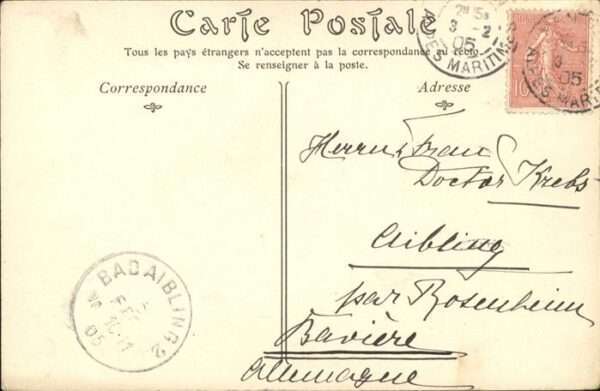 Carte Postale
Tous les pays étrangers n'acceptent pas la correspondance au recto.
Se renseigner à la poste.
Correspondance
Adresse
3 - 2
05
ALPES MARITIM
10
05
ALPES MARITI
Herrn & Frau
Doctor Krebs
Aibling
par Rosenheim
Bavière
Allemagne
BAD AIBLING 2
FEB
10-11
05